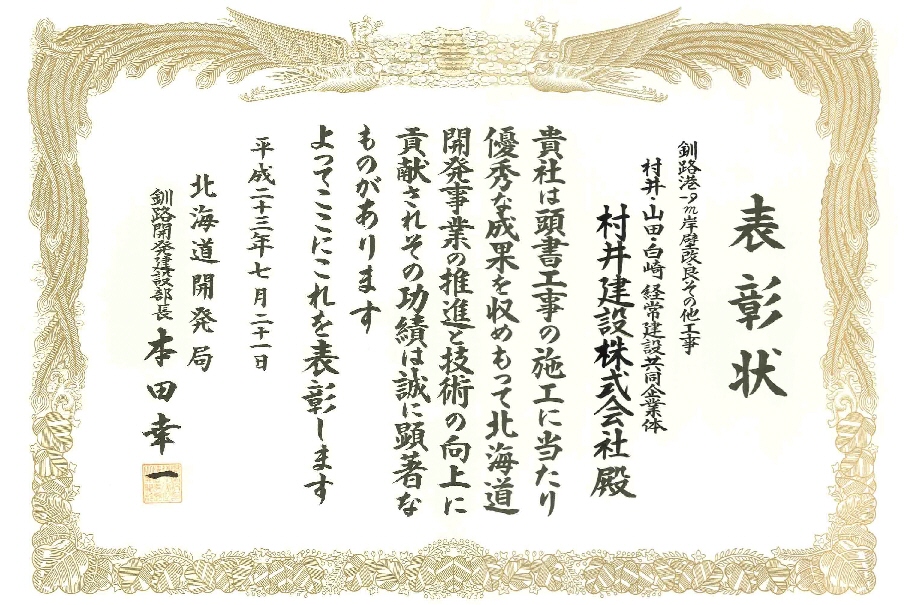 表彰状
釧路港-9m岸壁改良その他工事
村井・山田・白崎 経常建設共同企業体
村井建設株式会社 殿
貴社は頭書工事の施工に当たり
優秀な成果を収めもって北海道
開発事業の推進と技術の向上に
貢献されその功績は誠に顕著な
ものがあります
よってここにこれを表彰します
平成二十三年七月二十一日
北海道開発局
釧路開発建設部長 本田幸一